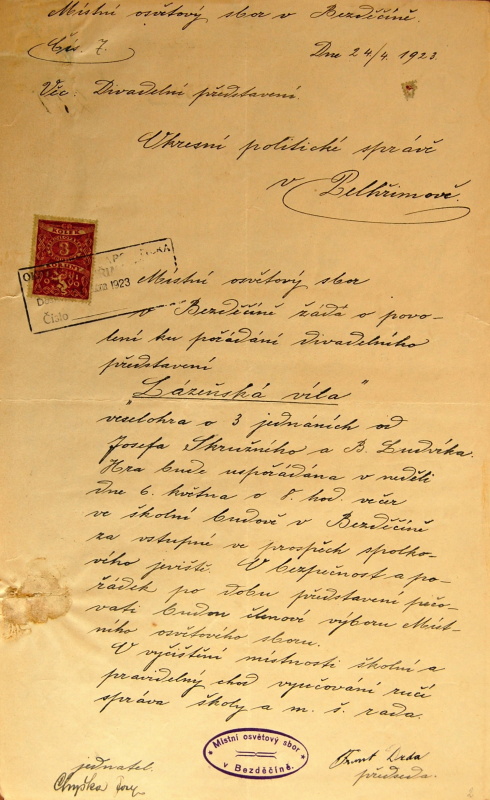 Místní osvětový sbor v Bezděčíně.
Čís. 7.
Dne 24/4. 1923.
Věc: Divadelní představení.
Okresní politické správě
v Pelhřimově.
KOLEK
3
KORUNY
1923
Číslo
Místní osvětový sbor
v Bezděčíně žádá o povo-
lení ku pořádání divadelního
představení
"Lázeňská víla"
veselohra o 3 jednáních od
Josefa Skružného a B. Ludvíka.
Hra bude uspořádána v neděli
dne 6. května o 8. hod. večer
ve školní budově v Bezděčíně
za vstupné ve prospěch spolko-
vého jeviště. O bezpečnost a po-
řádek po dobu představení pečo-
vati budou členové výboru Míst-
ního osvětového sboru.
O vyčištění místnosti školní a
pravidelný chod vyučování ručí
správa školy a m. š. rada.
Místní osvětový sbor
v Bezděčíně.
jednatel.
předseda.